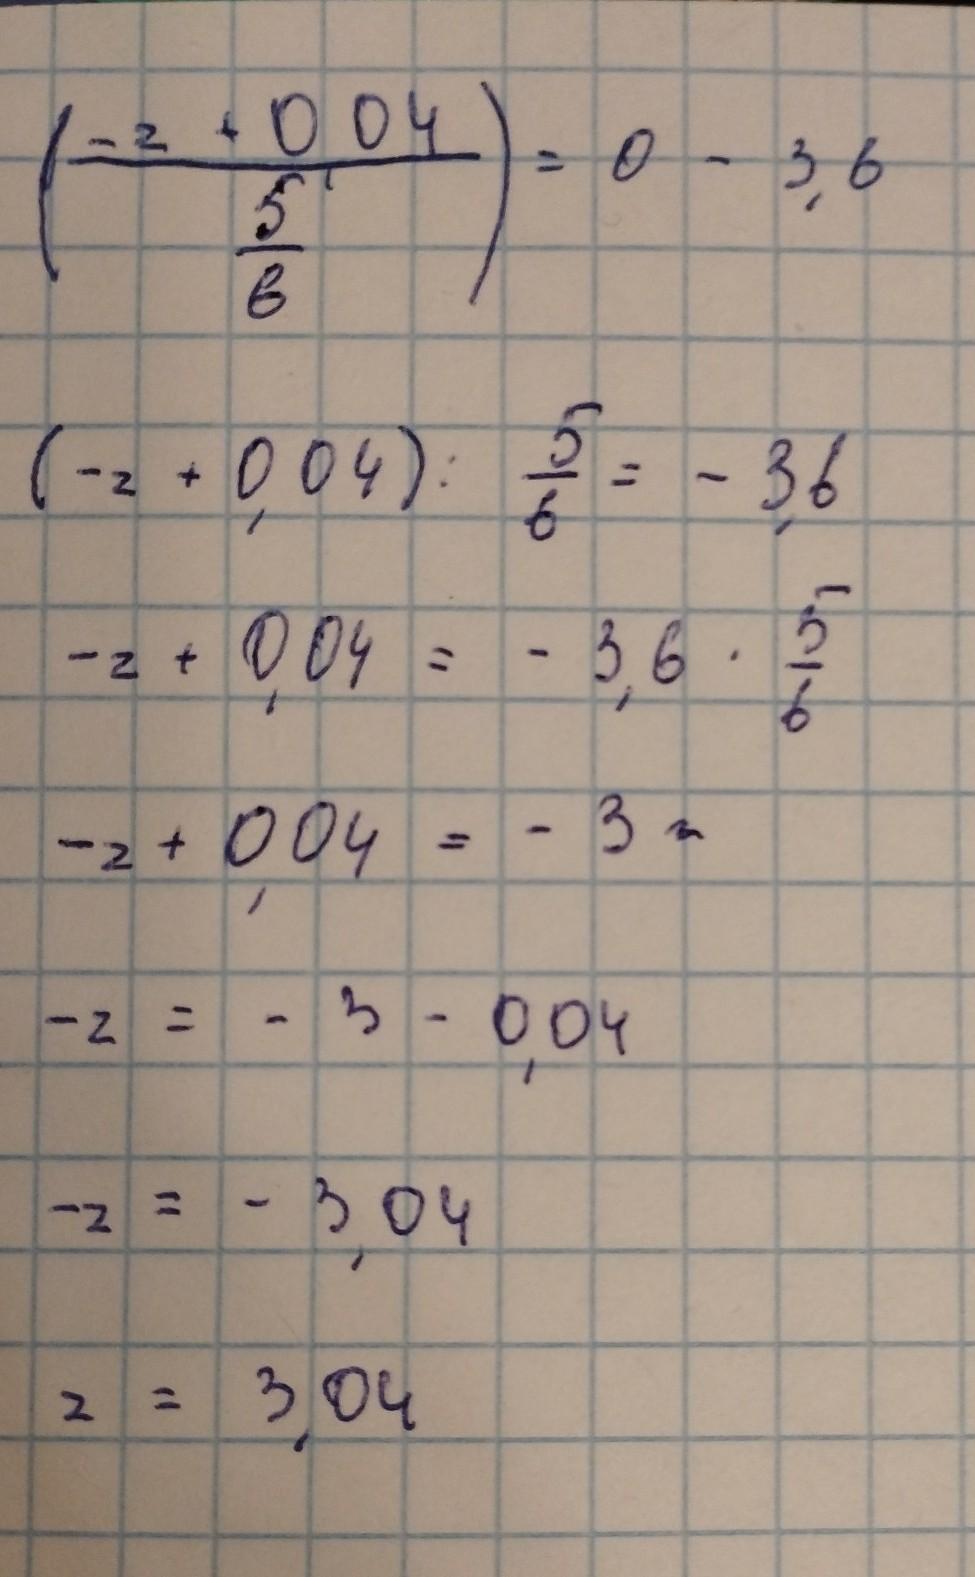 (-z + 0,04 / 5/6) = 0 - 3,6
(-z + 0,04) : 5/6 = - 3,6
-z + 0,04 = - 3,6 · 5/6
-z + 0,04 = - 3
-z = - 3 - 0,04
-z = - 3,04
z = 3,04